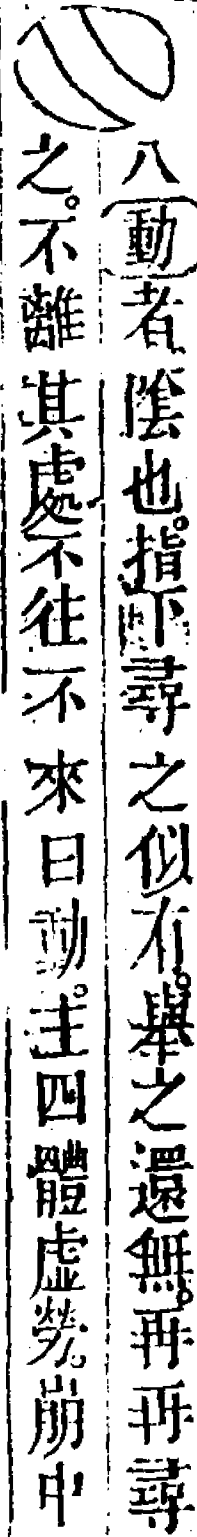 八動者陰也。指下尋之似有。舉之還無。再再尋
之。不離其處。不往不來曰動。主四體虛勞。崩中